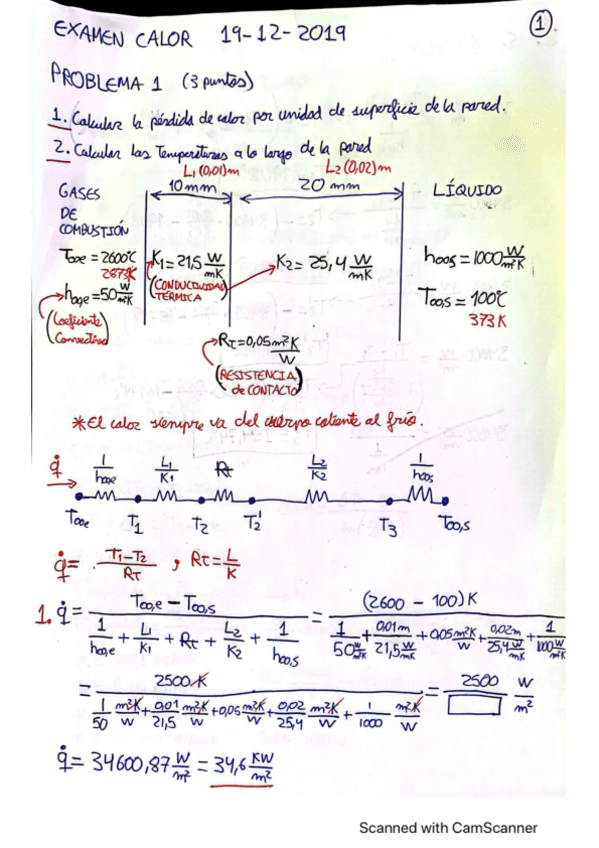 EXAMEN CALOR 19-12-2019
1
PROBLEMA 1 (3 puntos)
1. Calcular la pérdida de calor por unidad de superficie de la pared.
2. Calcular las Temperaturas a lo largo de la pared
L₁(0,01)m L₂(0,02)m
GASES DE COMBUSTIÓN
10mm
20 mm
LÍQUIDO
T∞e = 2600ºC
2873K
h∞e = 50 W/m²K
(Coeficiente Convectivo)
K₁ = 21,5 W/mK
(CONDUCTIVIDAD TÉRMICA)
K₂ = 25,4 W/mK
h∞s = 1000 W/m²K
T∞,s = 100ºC
373K
Rt = 0,05 m²K/W
(RESISTENCIA de CONTACTO)
*El calor siempre va del cuerpo caliente al frío.
q̇ 1/h∞e L₁/K₁ Rt L₂/K₂ 1/h∞s
T∞e T₁ T₂ T₂' T₃ T∞,s
q̇ = (T₁-T₂)/Rt , Rt = L/K
1. q̇ = (T∞,e - T∞,s)/(1/h∞,e + L₁/K₁ + Rt + L₂/K₂ + 1/h∞,s) = (2600 - 100)K/(1/50 W/m²K + 0,01m/21,5 W/mK + 0,05 m²K/W + 0,02m/25,4 W/mK + 1/1000 W/m²K)
= 2500 K/(1/50 m²K/W + 0,01/21,5 m²K/W + 0,05 m²K/W + 0,02/25,4 m²K/W + 1/1000 m²K/W) = 2500/□ W/m²
q̇ = 34600,87 W/m² = 34,6 KW/m²
Scanned with CamScanner